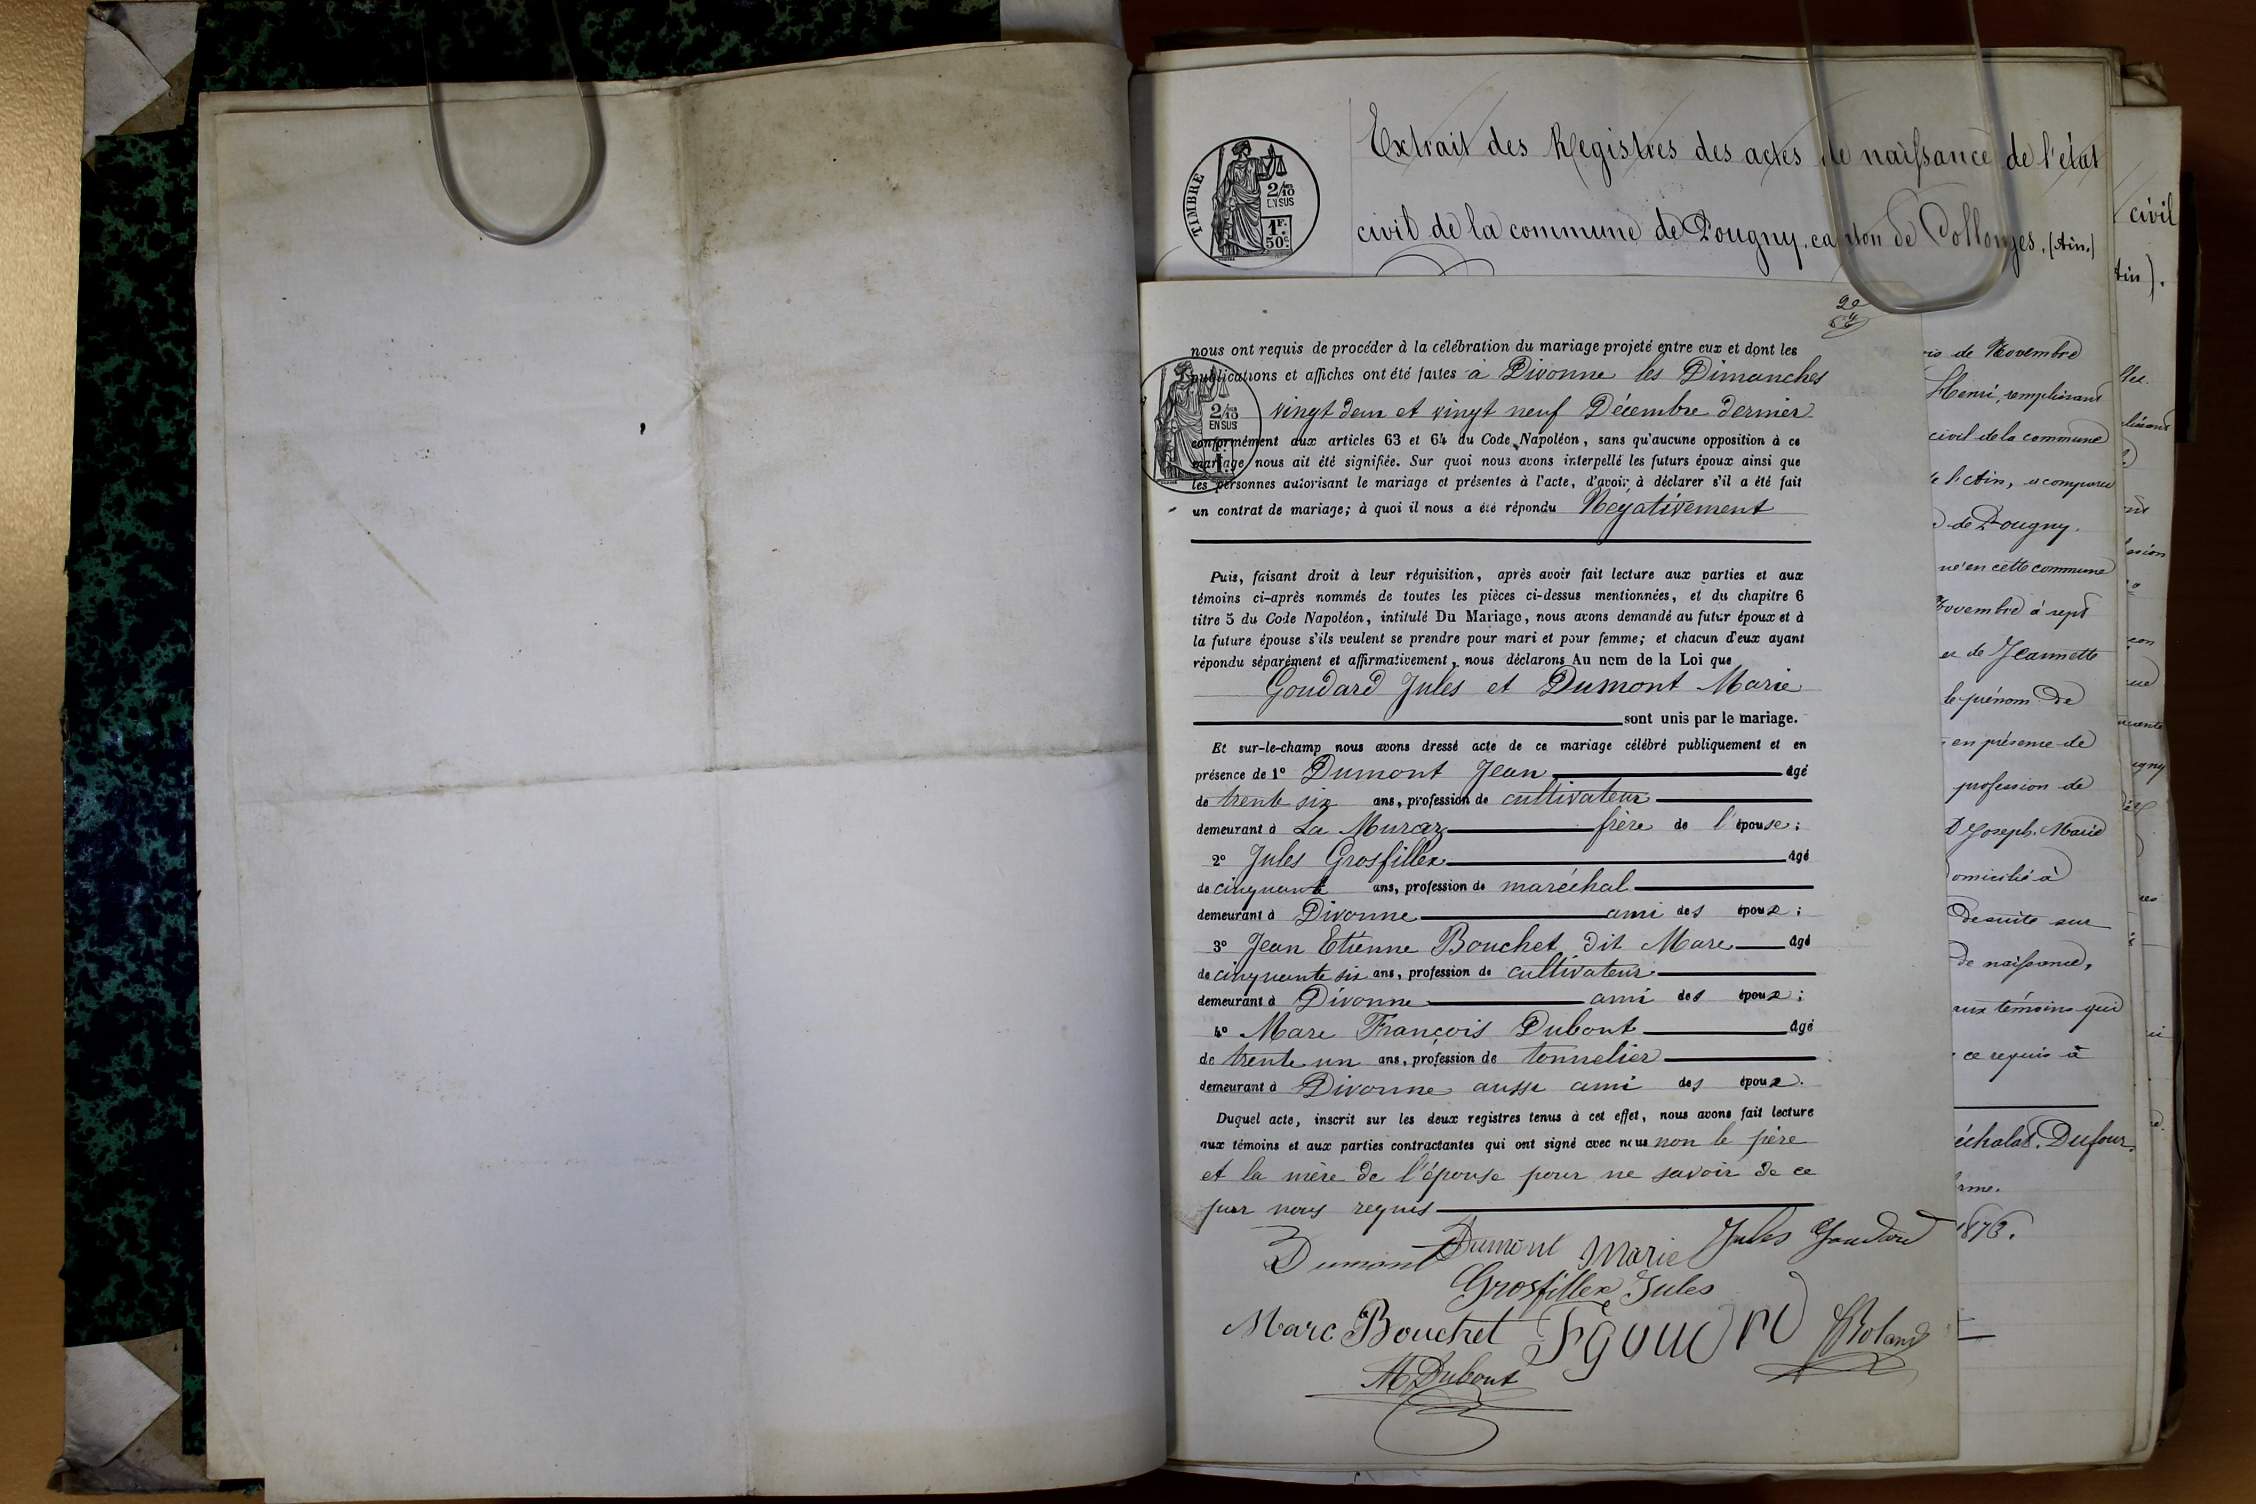 Extrait des Registres des actes de naissance de l'état
civil de la commune de Pougny, canton de Collonges, (Ain.)
TIMBRE
2/10 EN SUS
1F. 50c
nous ont requis de procéder à la célébration du mariage projeté entre eux et dont les
publications et affiches ont été faites à Divonne les Dimanches
vingt deux et vingt neuf Décembre dernier
conformément aux articles 63 et 64 du Code Napoléon, sans qu'aucune opposition à ce
mariage nous ait été signifiée. Sur quoi nous avons interpellé les futurs époux ainsi que
les personnes autorisant le mariage et présentes à l'acte, d'avoir à déclarer s'il a été fait
un contrat de mariage; à quoi il nous a été répondu Négativement
2/10 EN SUS
Puis, faisant droit à leur réquisition, après avoir fait lecture aux parties et aux
témoins ci-après nommés de toutes les pièces ci-dessus mentionnées, et du chapitre 6
titre 5 du Code Napoléon, intitulé Du Mariage, nous avons demandé au futur époux et à
la future épouse s'ils veulent se prendre pour mari et pour femme; et chacun d'eux ayant
répondu séparément et affirmativement, nous déclarons Au nom de la Loi que
Goudard Jules et Dumont Marie
sont unis par le mariage.
Et sur-le-champ nous avons dressé acte de ce mariage célébré publiquement et en
présence de 1° Dumont Jean âgé
de trente six ans, profession de cultivateur
demeurant à La Muraz frère de l'épouse;
2° Jules Grosfillex âgé
de cinquante ans, profession de maréchal
demeurant à Divonne ami des époux;
3° Jean Etienne Bouchet dit Marc âgé
de cinquante six ans, profession de cultivateur
demeurant à Divonne ami des époux;
4° Marc François Dubout âgé
de trente un ans, profession de tonnelier
demeurant à Divonne aussi ami des époux.
Duquel acte, inscrit sur les deux registres tenus à cet effet, nous avons fait lecture
aux témoins et aux parties contractantes qui ont signé avec nous non le père
et la mère de l'épouse pour ne savoir de ce
par nous requis
Dumont Dumont Marie Jules Goudard
Grosfillex Jules
Marc Bouchet
M Dubout
de Novembre
Henri, remplissant
civil de la commune
de Pougny.
né en cette commune
Novembre à sept
de Jeannette
le prénom de
en présence de
profession de
Joseph. Marie
domicilié à
de suite sur
de naissance,
aux témoins qui
ce requis à
Dufour.
1873.
civil